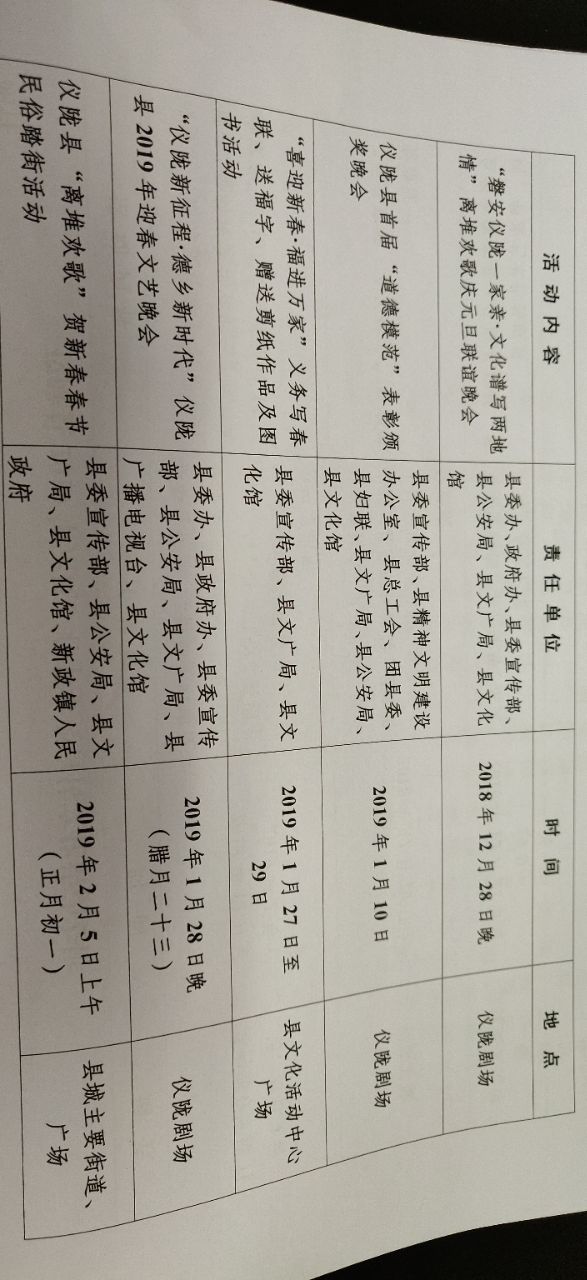 活动内容
责任单位
时间
地点
“磐安仪陇一家亲·文化谱写两地
情”离堆欢歌庆元旦联谊晚会
县委办、政府办、县委宣传部、
县公安局、县文广局、县文化
馆
2018年12月28日晚
仪陇剧场
仪陇县首届“道德模范”表彰颁
奖晚会
县委宣传部、县精神文明建设
办公室、县总工会、团县委、
县妇联、县文广局、县公安局、
县文化馆
2019年1月10日
仪陇剧场
“喜迎新春·福进万家”义务写春
联、送福字、赠送剪纸作品及图
书活动
县委宣传部、县文广局、县文
化馆
2019年1月27日至
29日
县文化活动中心
广场
“仪陇新征程·德乡新时代”仪陇
县2019年迎春文艺晚会
县委办、县政府办、县委宣传
部、县公安局、县文广局、县
广播电视台、县文化馆
2019年1月28日晚
（腊月二十三）
仪陇剧场
仪陇县“离堆欢歌”贺新春春节
民俗踏街活动
县委宣传部、县公安局、县文
广局、县文化馆、新政镇人民
政府
2019年2月5日上午
（正月初一）
县城主要街道、
广场